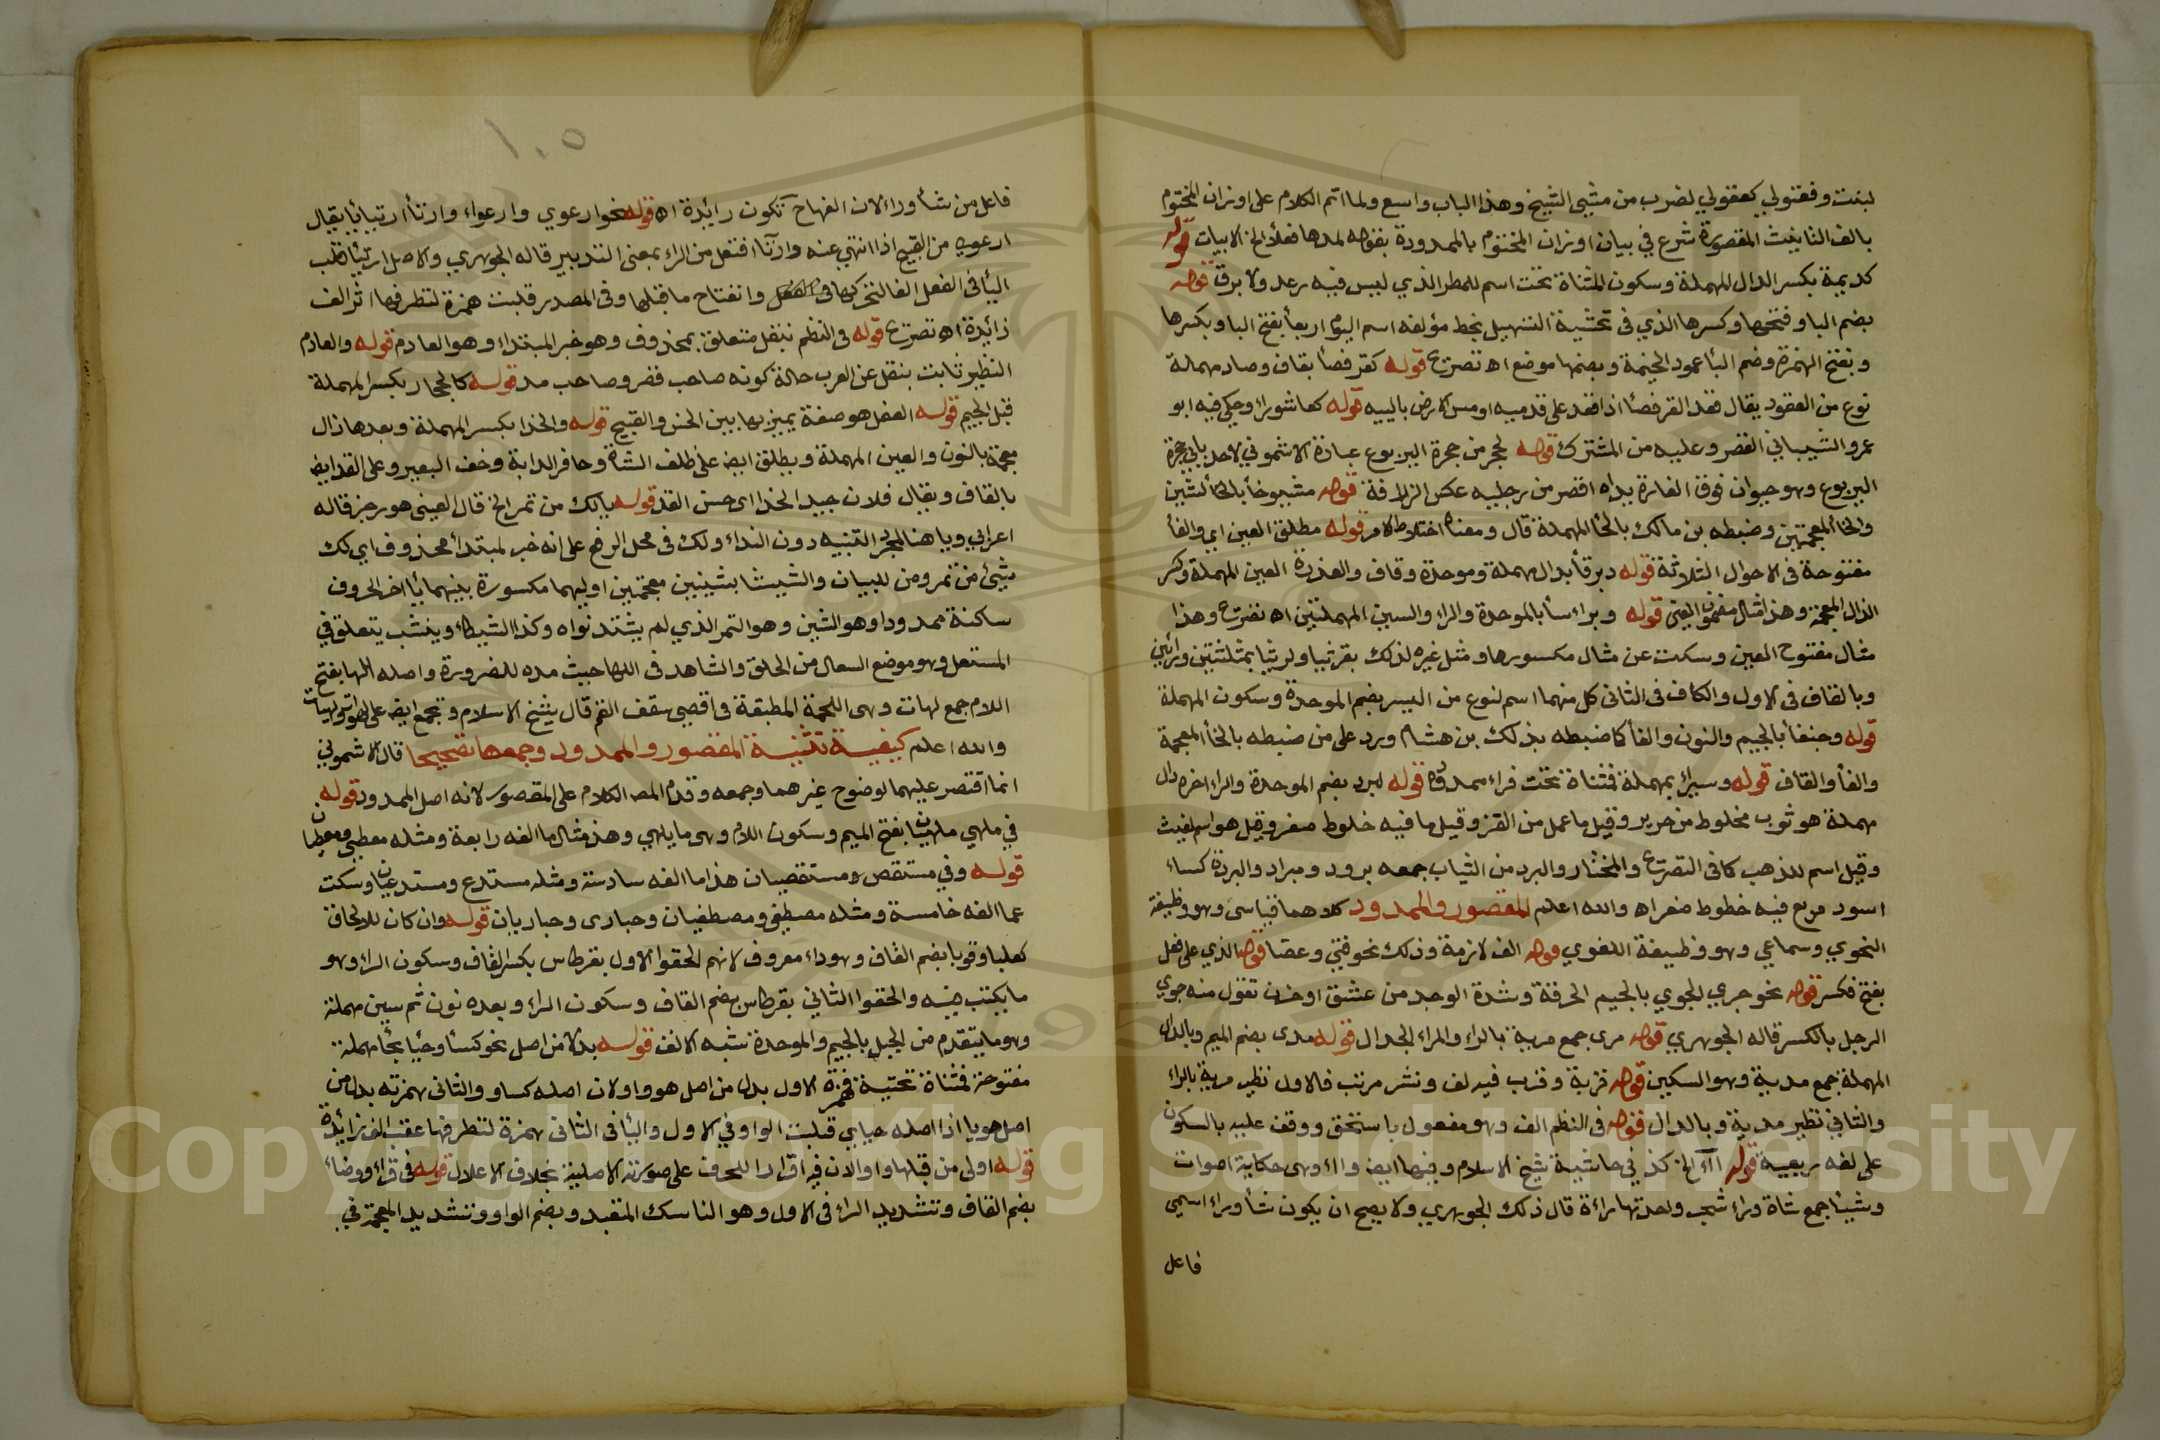 لبنت وفعولي كعقولي لضرب من مشي الشيخ وهذا الباب واسع ولما اتم الكلام على اوزان المختوم
بالف التانيث المقصورة شرع في بيان اوزان المختوم بالممدودة بقوله لمدها فعلاء الخ الابيات قوله
كديمة بكسر الدال المهملة وسكون المثناة تحت اسم للمطر الذي ليس فيه رعد ولا برق قوله
بضم الباء وفتحها وكسرها الذي في تحشية التسهيل بخط مؤلفه اسم اليوم اربعاء بفتح الباء وبكسرها
وبفتح الهمزة وضم الباء عمود الخيمة وبضمها موضع اه تصريح قوله كقرفصاء بقاف وصاد مهملة
نوع من القعود يقال قعد القرفصاء اذا قعد على قدميه ومس الارض باليتيه قوله كعاشوراء وحكى فيه ابو
عمرو الشيباني القصر وعليه من المشترك قوله لحجر من حجرة اليربوع عبارة الاشموني لاحد بابي حجرة
اليربوع وهو حيوان فوق الفارة يداه اقصر من رجليه عكس الزرافة قوله مشيوخاء بالشين
والخاء المعجمتين وضبطه بن مالك بالحاء المهملة قال ومعناه اختلاط الامر قوله مطلق العين اي والفاء
مفتوحة في الاحوال الثلاثة قوله دبوقاء بدال مهملة وموحدة وقاف والعذرة العين المهملة وكسر
الذال المعجمة وهذا مثال مضموم العين قوله وبراساء بالموحدة والراء والسين المهملتين اه تصريح وهذا
مثال مفتوح العين وسكت عن مثال مكسورها ومثل غيره لذلك بقريثا وكريثا بمثلثتين ورائين
وبالقاف في الاول والكاف في الثاني كل منهما اسم لنوع من البسر بضم الموحدة وسكون المهملة
قوله وجنفاء بالجيم والنون والفاء كما ضبطه بذلك بن هشام ورد على من ضبطه بالخاء المعجمة
والفاء والقاف قوله وسيراء بمهملة فمثناة تحت فراء ممدودة قوله لبرد بضم الموحدة والراء اخره دال
مهملة هو ثوب مخلوط من حرير وقيل ما عمل من القز وقيل ما فيه خلوط صفر وقيل هو اسم لغيث
وقيل اسم للذهب كما في التصريح والمختار والبرد من الثياب جمعه برود وبراد والبردة كساء
اسود مربع فيه خطوط صفر اه والله اعلم المقصور والممدود كلاهما قياسي وهو وظيفة
النحوي وسماعي وهو وظيفة اللغوي قوله الف لازمة وذلك نحو فتى وعصا قوله الذي على فعل
بفتح فكسر قوله نحو جوي الجوي بالجيم الحرقة وشدة الوجد من عشق او حزن تقول منه جوي
الرجل بالكسر قاله الجوهري قوله مرى جمع مرية بالراء والمراء الجدال قوله مدى بضم الميم وبالدال
المهملة جمع مدية وهو السكين قوله قربة وقرب فيه لف ونشر مرتب فالاول نظير مرية بالراء
والثاني نظير مدية وبالدال قوله في النظم الف وهو مفعول باستحق ووقف عليه بالسكون
على لغة ربيعية قوله اآء الخ كذا في حاشية شيخ الاسلام وفيها ايضا واء وهي حكاية اصوات
وشيئا جمع شاة وراء شجر واحدتها راءة قال ذلك الجوهري ولا يصح ان يكون شاء وراء اسمي
فاعل
١٠٥
فاعل من شاء وراء لان الفهما ح تكون زائدة اه قوله نحو ارعوي وارعواء وارتأى ارتياء يقال
ارعوى من القبيح اذا انتهي عنه وارتأى افتعل من الراء بمعنى التدبير قاله الجوهري والاصل ارتيا قلب
الياء في الفعل الفا لتحركها وانفتاح ما قبلها وفي المصدر قلبت همزة لتطرفها اثر الف
زائدة اه تصريح قوله في النظم بنقل متعلق بمحذوف وهو خبر المبتداء وهو العادم قوله والعادم
النظير ثابت بنقل عن العرب حالة كونه صاحب قصر وصاحب مد قوله كالحجا بكسر المهملة
قبل الجيم قوله العقل هو صفة يميز بها بين الحسن والقبيح قوله والحذا بكسر المهملة وبعدها ذال
معجمة بالنون والعين المهملة ويطلق ايضا على ظلف الشاة وحافر الدابة وخف البعير وعلى القد ايضا
بالقاف ويقال فلان جيد الحذا اي حسن القد قوله يالك من تمر الخ قال العيني هو رجز قاله
اعرابي ويا هنا لمجرد التنبيه دون النداء ولك في محل الرفع على انه خبر لمبتدأ محذوف اي لك
شيئ من تمر ومن للبيان والشيشا بشينين معجمتين اوليهما مكسورة بينهما ياء اخر الحروف
ساكنة ممدودا وهو الشين وهو التمر الذي لم يشتد نواه وكذا الشيطاء وينشب يتعلق في
المستعل وهو موضع السعال من الحلق والشاهد في اللها حيث مده للضرورة واصله اللها بفتح
اللام جمع لهات وهي اللحمة المطبقة في اقصى سقف الفم قال شيخ الاسلام وتجمع ايضا على لهوات ولهيات
والله اعلم كيفية تثنية المقصور والممدود وجمعها تصحيحا قال الاشموني
انما اقتصر عليهما لوضوح غيرهما وجمعه وقدم المصـ الكلام على المقصور لانه اصل الممدود قوله
في ملهي ملهيان بفتح الميم وسكون اللام وهي ما يلهي وهذا مثال ما الفه رابعة ومثله معطى ومعطيان
قوله وفي مستقصى ومستقصيان هذا ما الفه سادسة ومثله مستدعى ومستدعيان وسكت
عما الفه خامسة ومثله مصطفى ومصطفيان وحبارى وحباريان قوله وان كان للالحاق
كعلباء وقوباء بضم القاف وهو داء معروف لانهم الحقوا الاول بقرطاس بكسر القاف وسكون الراء وهو
ما يكتب فيه والحقوا الثاني بقرطاس بضم القاف وسكون الراء وبعده نون ثم سين مهملة
وهو ما يتقدم من الجبل بالجيم والموحدة شبه الانف قوله بدلا من اصل نحو كساء وحياء بحاء مهملة
مفتوحة فمثناة تحتية فهمزة الاول بدل من اصل هو واو لان اصله كساو والثاني همزته بدل من
اصل هو يا اذ اصله حياي قلبت الواو في الاول والياء في الثاني همزة لتطرفها عقب الف زائدة
قوله اولى من قبلها واوا لان فيه اقرارا للحرف على صورته الاصلية بخلاف الاعلال قوله في قراء ووضاء
بضم القاف وتشديد الراء في الاول وهو الناسك المتعبد وبضم الواو وتشديد المعجمة في